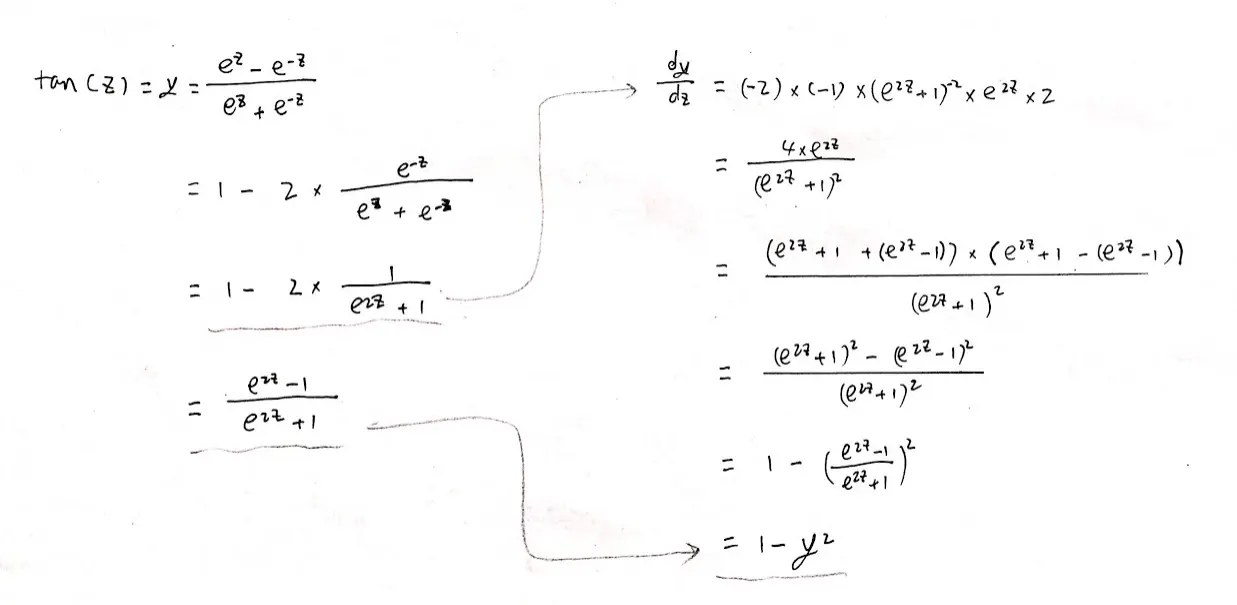 tan(z) = y = \frac{e^z - e^{-z}}{e^z + e^{-z}}
= 1 - 2 × \frac{e^{-z}}{e^z + e^{-z}}
= 1 - 2 × \frac{1}{e^{2z} + 1}
= \frac{e^{2z} - 1}{e^{2z} + 1}
\frac{dy}{dz} = (-2) × (-1) × (e^{2z} + 1)^{-2} × e^{2z} × 2
= \frac{4 × e^{2z}}{(e^{2z} + 1)^2}
= \frac{(e^{2z} + 1 + (e^{2z} - 1)) × (e^{2z} + 1 - (e^{2z} - 1))}{(e^{2z} + 1)^2}
= \frac{(e^{2z} + 1)^2 - (e^{2z} - 1)^2}{(e^{2z} + 1)^2}
= 1 - (\frac{e^{2z} - 1}{e^{2z} + 1})^2
= 1 - y^2